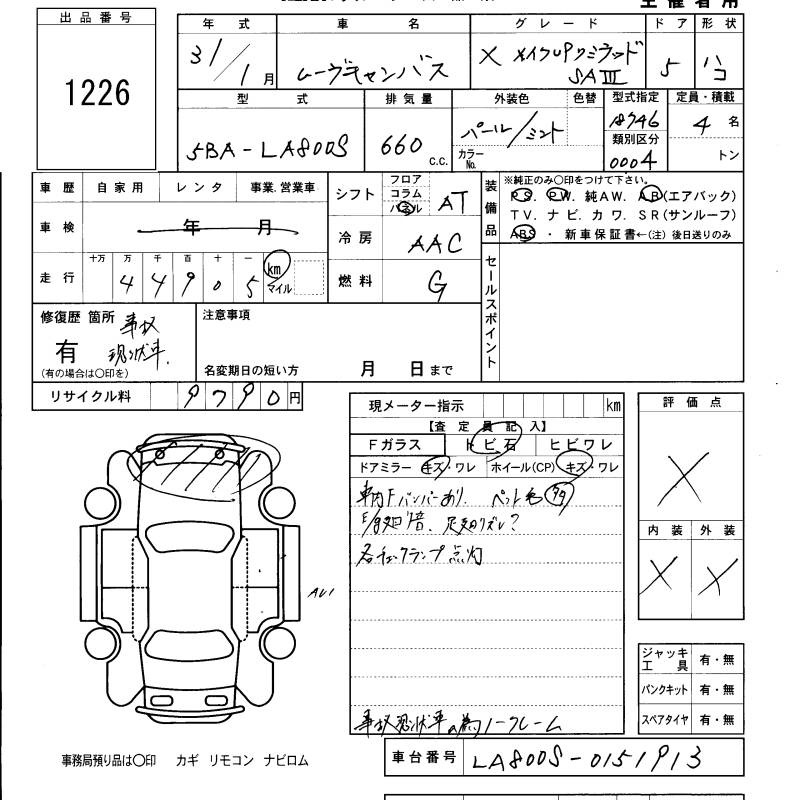 出品番号
1226
年式 車名 グレード ドア 形状
31/1月 ムーヴキャンバス X メイクUPリミテッド SAIII 5 ハコ
型式 排気量 外装色 色替 型式指定 定員・積載
5BA-LA800S 660 C.C. パール/ミント カラーNo. 18746 4名
類別区分
0004 トン
車歴 自家用 レンタ 事業.営業車
車検 年 月
走行 十万 万 千 百 十 一 km マイル
4 4 9 0 5
シフト フロア コラム パネル AT
冷房 AAC
燃料 G
装備品
※純正のみ〇印をつけて下さい。
PS. PW. 純AW. AB(エアバック)
TV. ナビ. カワ. SR(サンルーフ)
ABS ・ 新車保証書←(注) 後日送りのみ
セールスポイント
修復歴 箇所 事故
有 現状車.
(有の場合は〇印を)
注意事項
名変期日の短い方 月 日まで
リサイクル料 9790円
現メーター指示 km
【査定員記入】
Fガラス トビ石 ヒビワレ
ドアミラー キズ・ワレ ホイール(CP) キズ・ワレ
車内Fバンパーあり.
各チェックランプ点灯
事故現状車の為ノークレーム
評価点
X
内装 外装
X X
ジャッキ工具 有・無
パンクキット 有・無
スペアタイヤ 有・無
事務局預り品は〇印 カギ リモコン ナビロム
車台番号 LA800S-0151913